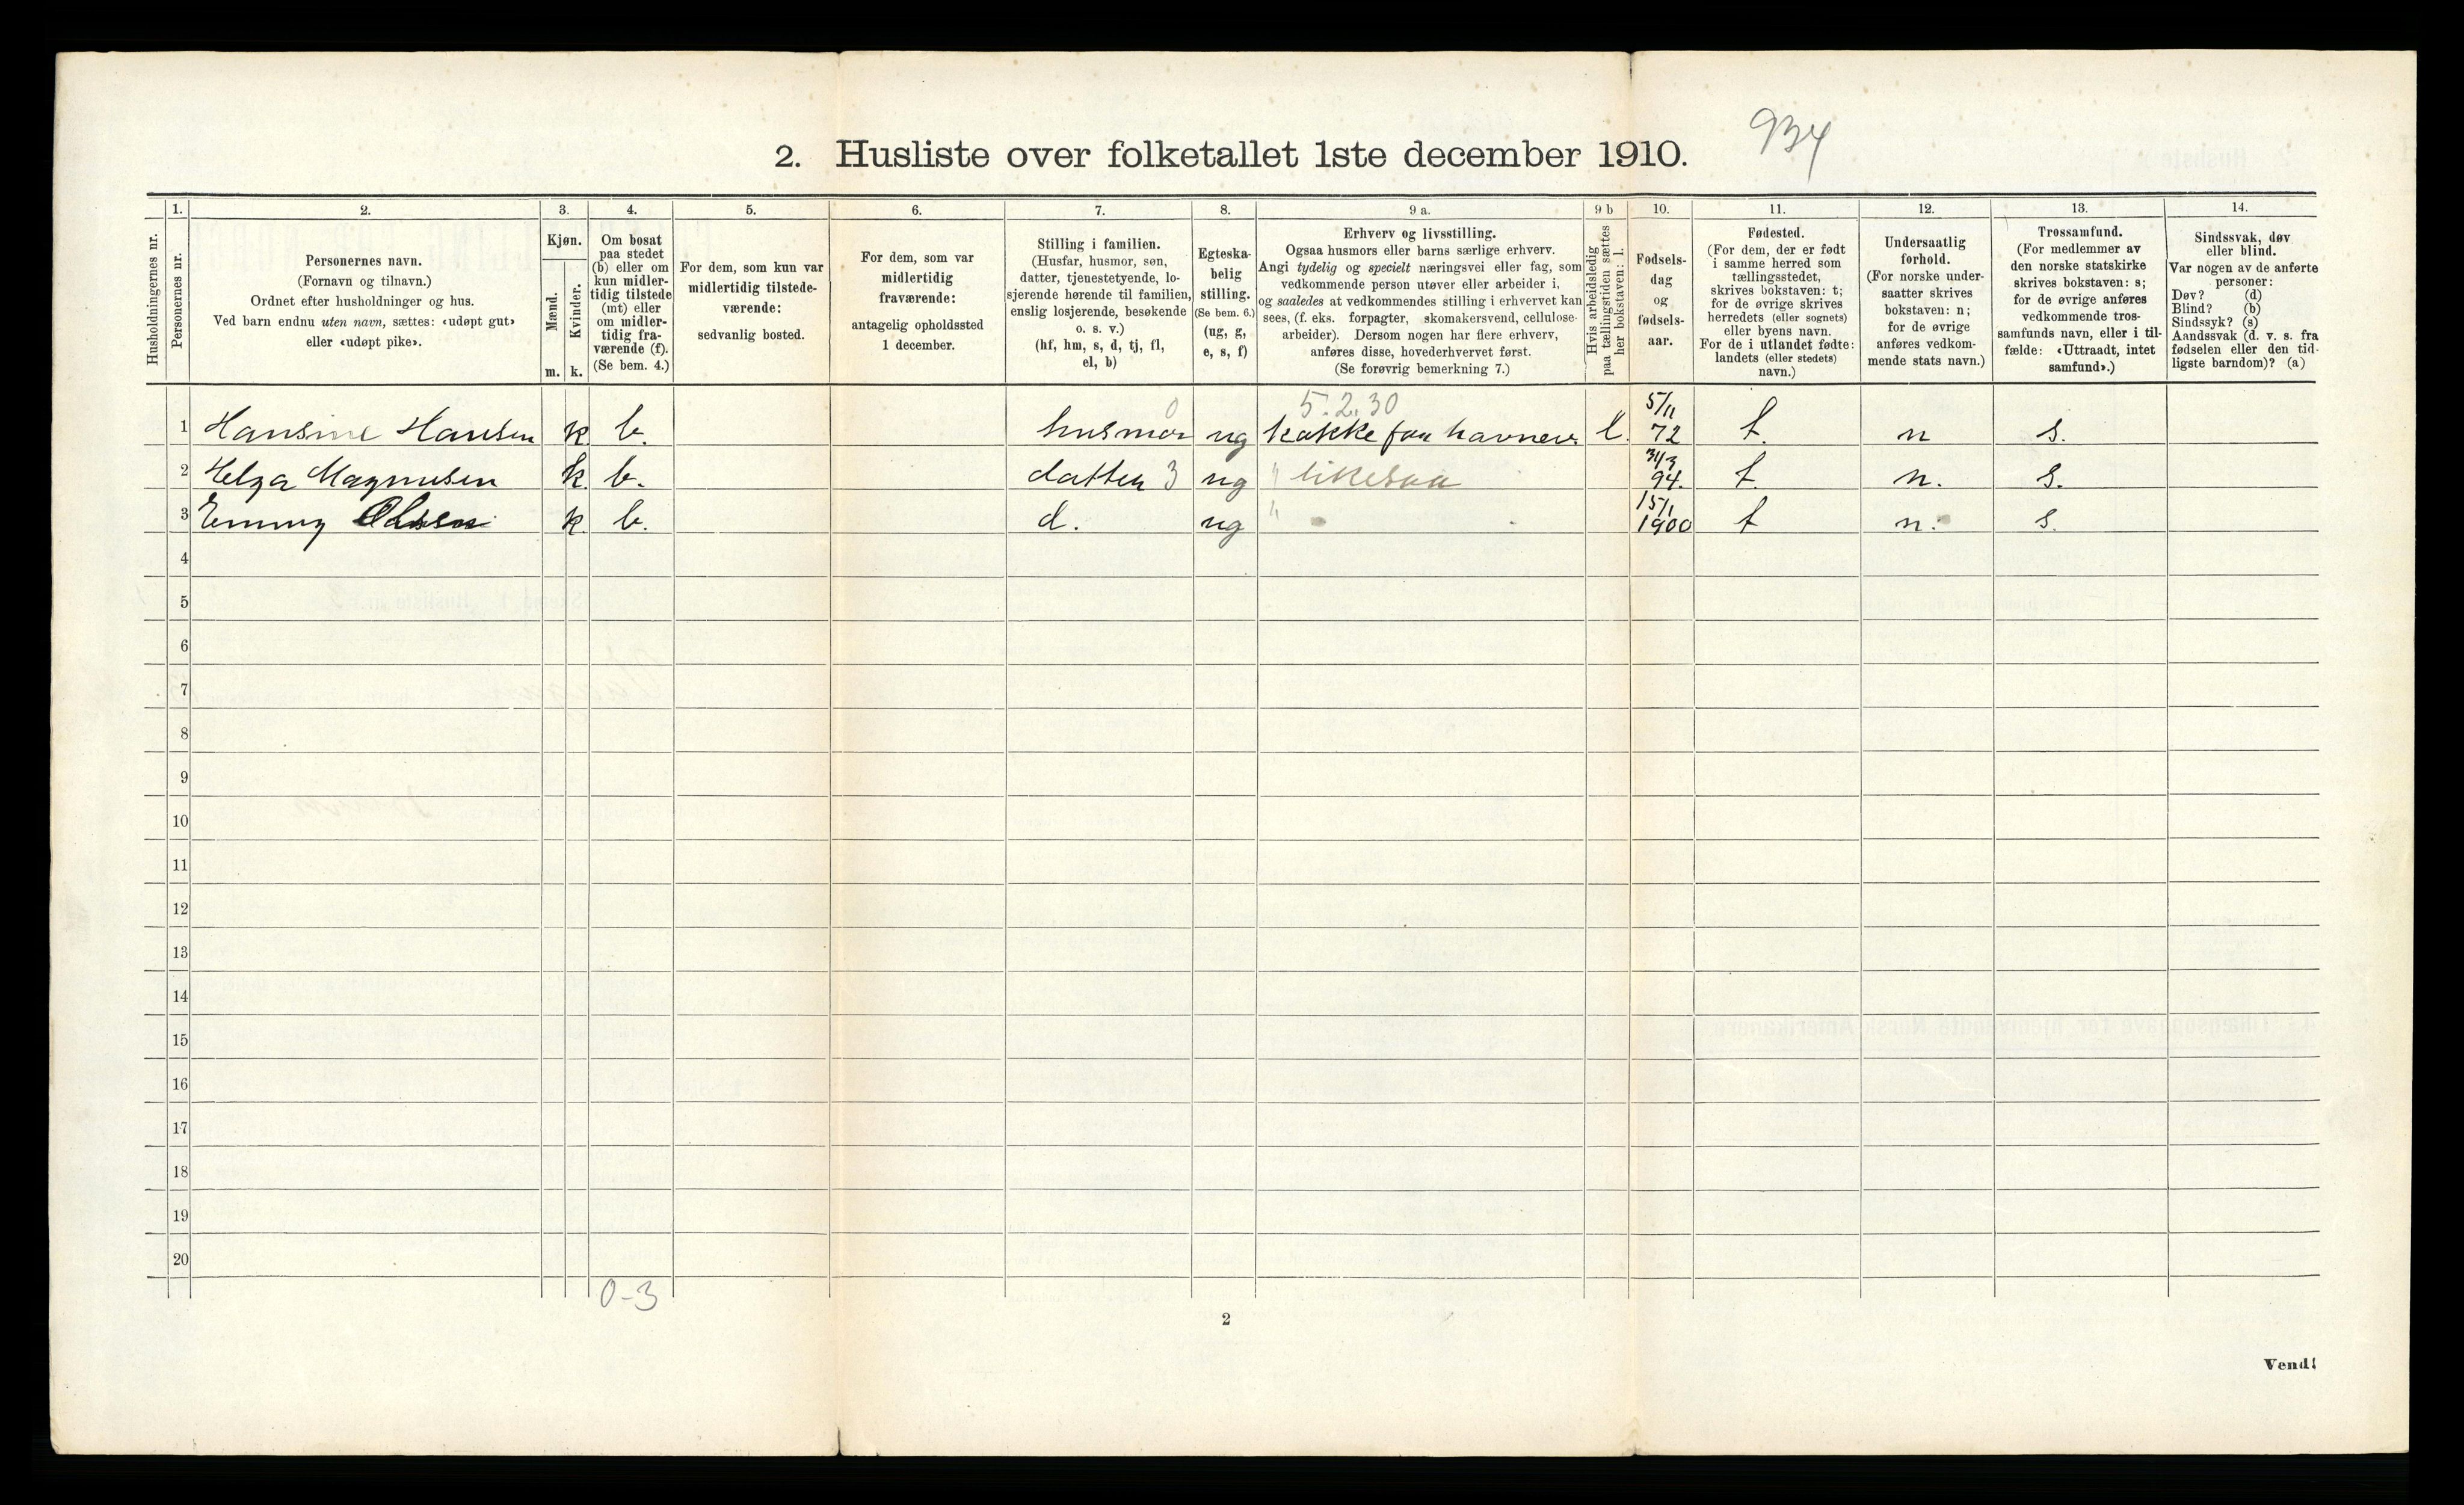 934
2. Husliste over folketallet 1ste december 1910.
Husholdningernes nr.
1.
Personernes nr.
2.
Personernes navn.
(Fornavn og tilnavn.)
Ordnet efter husholdninger og hus.
Ved barn endnu uten navn, sættes: «udøpt gut»
eller «udøpt pike».
3.
Kjøn.
Mænd.
Kvinder.
m. k.
4.
Om bosat
paa stedet
(b) eller om
kun midler-
tidig tilstede
(mt) eller
om midler-
tidig fra-
værende (f).
(Se bem. 4.)
5.
For dem, som kun var
midlertidig tilstede-
værende:
sedvanlig bosted.
6.
For dem, som var
midlertidig
fraværende:
antagelig opholdssted
1 december.
7.
Stilling i familien.
(Husfar, husmor, søn,
datter, tjenestetyende, lo-
sjerende hørende til familien,
enslig losjerende, besøkende
o. s. v.)
(hf, hm, s, d, tj, fl,
el, b)
8.
Egteska-
belig
stilling.
(Se bem. 6.)
(ug, g,
e, s, f)
9 a.
Erhverv og livsstilling.
Ogsaa husmors eller barns særlige erhverv.
Angi tydelig og specielt næringsvei eller fag, som
vedkommende person utøver eller arbeider i,
og saaledes at vedkommendes stilling i erhvervet kan
sees, (f. eks. forpagter, skomakersvend, cellulose-
arbeider). Dersom nogen har flere erhverv,
anføres disse, hovederhvervet først.
(Se forøvrig bemerkning 7.)
9 b
Hvis arbeidsledig
paa tællingstiden sættes
her bokstaven: l.
10.
Fødsels-
dag
og
fødsels-
aar.
11.
Fødested.
(For dem, der er født
i samme herred som
tællingsstedet,
skrives bokstaven: t;
for de øvrige skrives
herredets (eller sognets)
eller byens navn.
For de i utlandet fødte:
landets (eller stedets)
navn.)
12.
Undersaatlig
forhold.
(For norske under-
saatter skrives
bokstaven: n;
for de øvrige
anføres vedkom-
mende stats navn.)
13.
Trossamfund.
(For medlemmer av
den norske statskirke
skrives bokstaven: s;
for de øvrige anføres
vedkommende tros-
samfunds navn, eller i til-
fælde: «Uttraadt, intet
samfund».)
14.
Sindssvak, døv
eller blind.
Var nogen av de anførte
personer:
Døv? (d)
Blind? (b)
Sindssyk? (s)
Aandssvak (d. v. s. fra
fødselen eller den tid-
ligste barndom)? (a)
0 5.2.30 5/11
1 Hansine Hansen k. b. husmor ug kokke paa havnev. l. 72 t. n s.
2 Helga Magnusen k. b. datter 3 ug " likesaa 31/3 94. t. n. s.
3 Emmy Olsen k. b. d. ug " 15/1 1900 t n. s.
4
5
6
7
8
9
10
11
12
13
14
15
16
17
18
19
20
0-3
2
Vend!